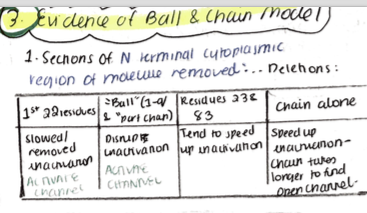 3. Evidence of Ball & Chain Model
1. Sections of N terminal cytoplasmic
region of molecule removed:... Deletions:
1st 22 residues
"Ball" (1-9/
& "part chain)
Residues 23 &
83
Chain alone
Slowed/
removed
inactivation
Activate
channel
Disrupts
inactivation
Activate
Channel
Tend to speed
up inactivation
Speed up
inactivation-
chain takes
longer to find
open channel.